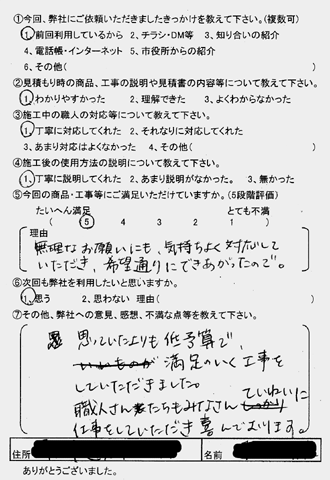 ①今回、弊社にご依頼いただきましたきっかけを教えて下さい。(複数可)
1、前回利用しているから 2、チラシ・DM等 3、知り合いの紹介
4、電話帳・インターネット 5、市役所からの紹介
6、その他( )
②見積もり時の商品、工事の説明や見積書の内容等について教えて下さい。
1、わかりやすかった 2、理解できた 3、よくわからなかった
③施工中の職人の対応等について教えて下さい。
1、丁寧に対応してくれた 2、それなりに対応してくれた
3、あまり対応はよくなかった 4、その他( )
④施工後の使用方法の説明について教えて下さい。
1、丁寧に説明してくれた 2、あまり説明がなかった。 3、無かった
⑤今回の商品・工事等にご満足いただけていますか。(5段階評価)
たいへん満足 とても不満
( 5 4 3 2 1 )
理由
無理なお願いにも、気持ちよく対応して
いただき、希望通りにできあがったので。
⑥次回も弊社を利用したいと思いますか。
1、思う 2、思わない 理由( )
⑦その他、弊社への意見、感想、不満な点等を教えて下さい。
思っていたよりも低予算で、
いいものが 満足のいく工事を
していただきました。
職人さんたちもみなさん しっかり ていねいに
仕事をしていただき喜んでおります。
住所 名前
ありがとうございました。